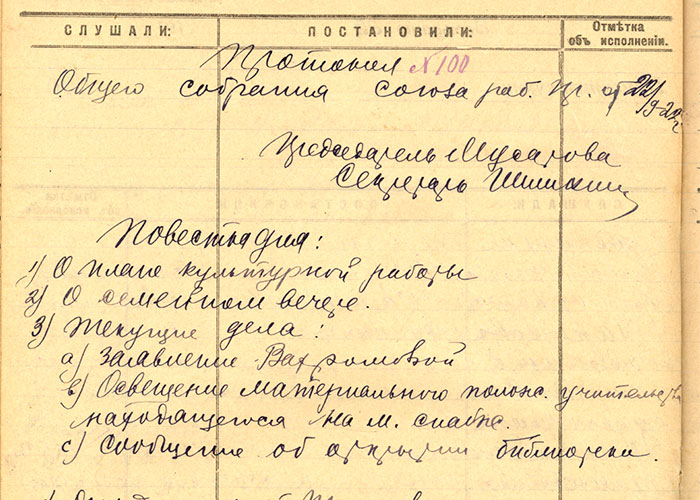 СЛУШАЛИ: ПОСТАНОВИЛИ: Отмѣтка объ исполненіи.
Протокол №100
Общего собрания союза раб. пр. от 22/
Председатель Мусатова
Секретарь Шишкин
Повестка дня:
1) О плане культурной работы
2) О семейном вечере.
3) Текущие дела:
а) Заявление Вахромовой
в) Освещение материального полож. учительства
находящегося на м. снабж.
с) Сообщение об открытии библиотеки.